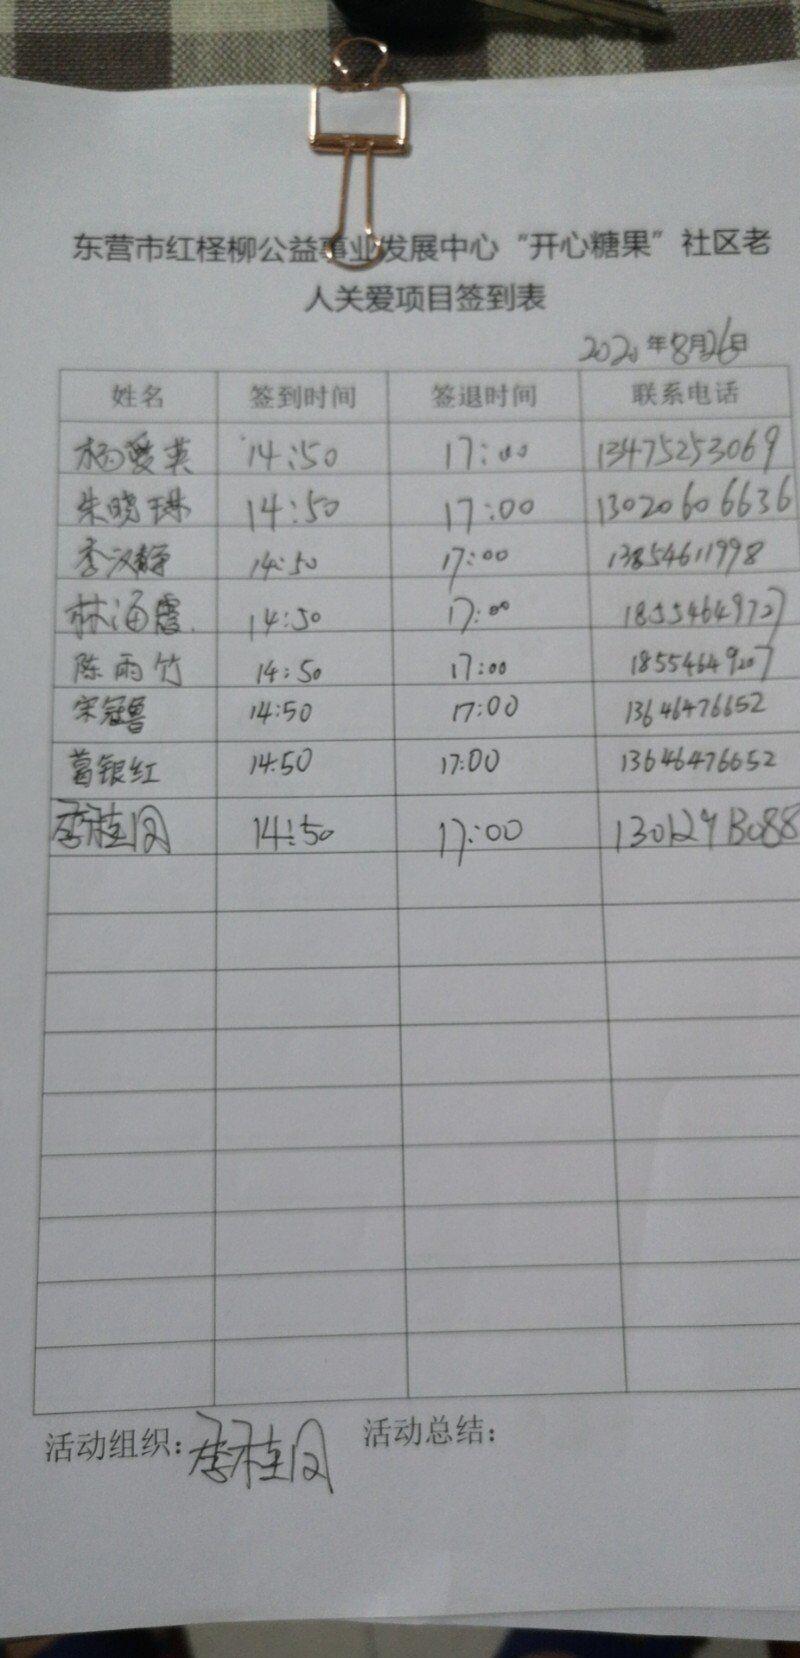 东营市红柽柳公益事业发展中心“开心糖果”社区老
人关爱项目签到表
2020年8月26日
姓名 签到时间 签退时间 联系电话
杨爱英 14:50 17:00 13475253069
朱晓琳 14:50 17:00 13020606636
李汉静 14:50 17:00 13854611998
林海霞 14:50 17:00 18554649727
陈雨竹 14:50 17:00 18554649207
宋冠鲁 14:50 17:00 13646476652
葛银红 14:50 17:00 13646476652
李桂凤 14:50 17:00
活动组织：李桂凤 活动总结：